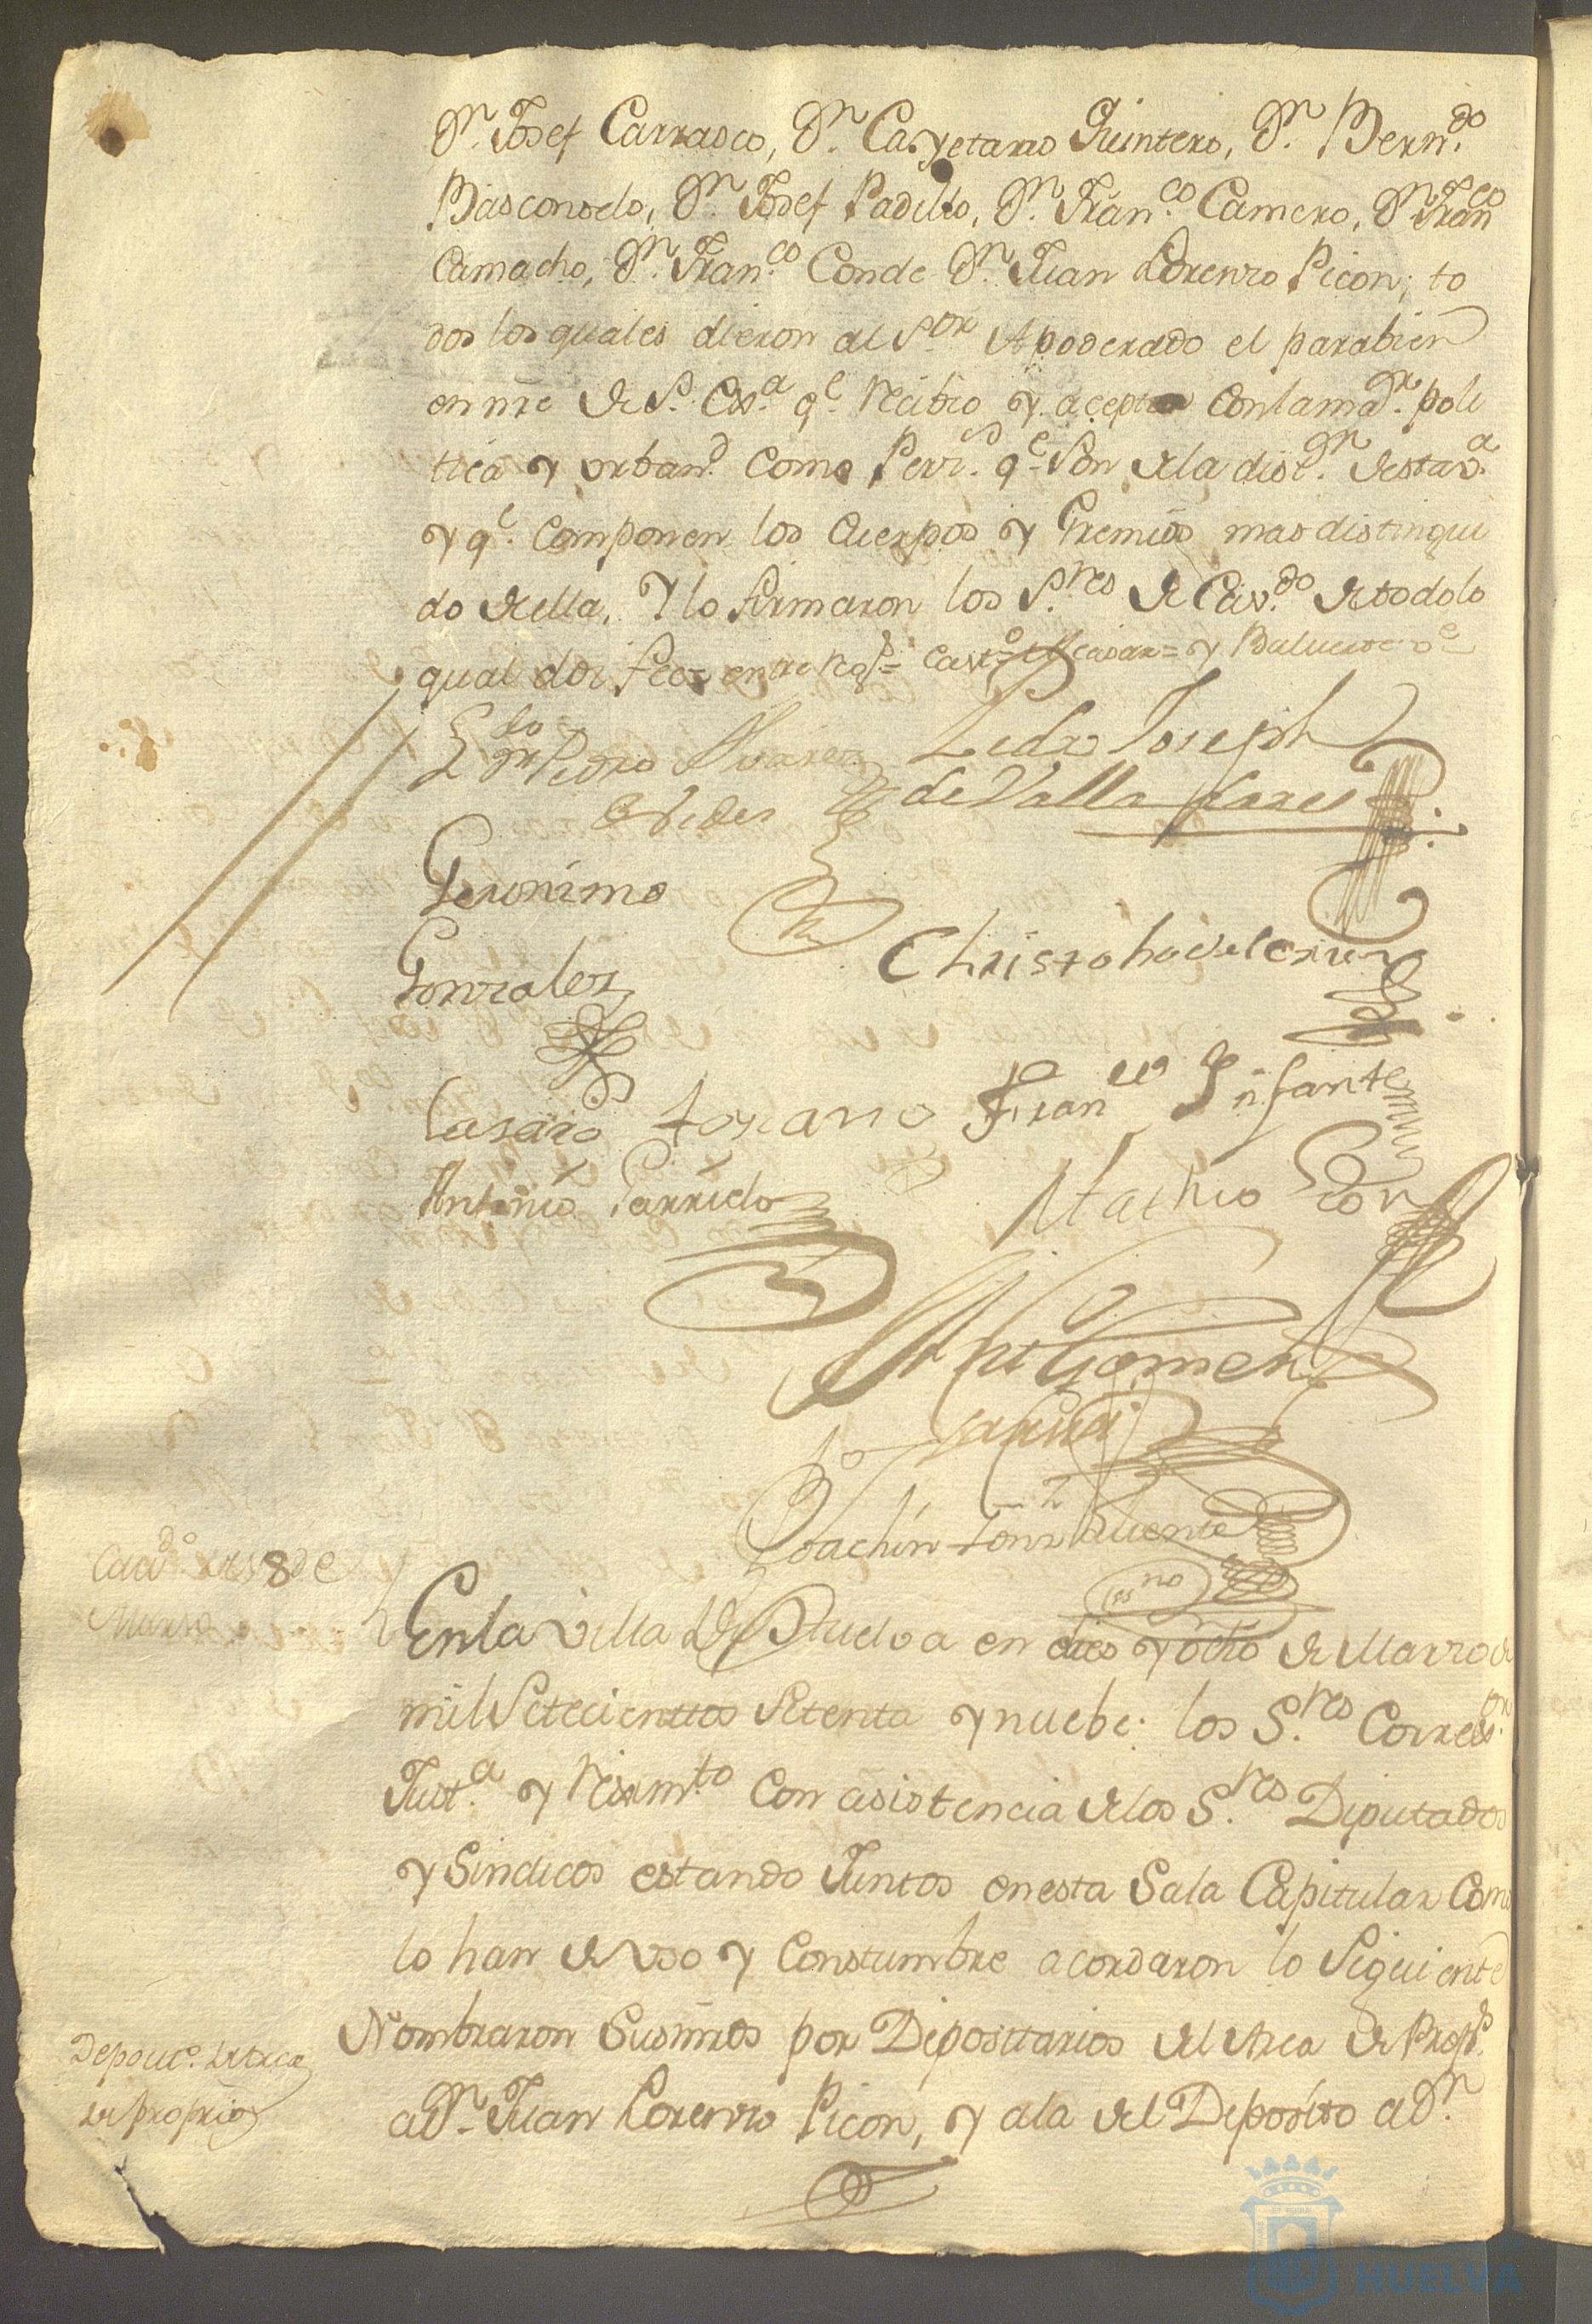 Dn. Josef Carrasco, Dn. Cayetano Quintero, Dn. Bern.do
Basconselo, Dn. Josef Padilla, Dn. Fran.co Camero, Dn. Franco
Camacho, Dn. Fran.co Conde Dn. Juan Lorenzo Picon, to
dos los quales dieron al S.or Apoderado el parabien
en nre de S. Ex.a q.e recibio y acepto con la ma.or poli
tica y urban.d como Pers.s q.e son de la dist.n desta v.a
y q.e componen los Cuerpos y Gremios mas distingui
do della, Y lo firmaron los S.res de Cav.do de todo lo
qual doi fee= entre reng.s=
Ldo Dn Pedro Alvarez
Ledo Joseph
de Valladares
Geronimo
Gonzalez
Christobal de la Cruz
Lasaro Lozano
Franco Infante
Antonio Garrido
Mathio Cdon
Ante Gomez
Garcia
Joachin Fonz
es.no
Cavdo de 18 de
Marzo
En la Villa de Huelva en dies y ocho de Marzo de
mil Setecientos Setenta y nuebe: los S.res Correg.or
Just.a y Regim.to con asistencia de los S.res Diputados
y Sindicos estando Juntos en esta Sala Capitular Como
lo han de vso y Constumbre acordaron lo Siguiente
Depout.o del Arca
de proprios
Nombraron Susmrds por Deposittarios del Arca de Prop.s
a Dn. Juan Lorenzo Picon, y a la del Deposito a Dn.
HUELVA